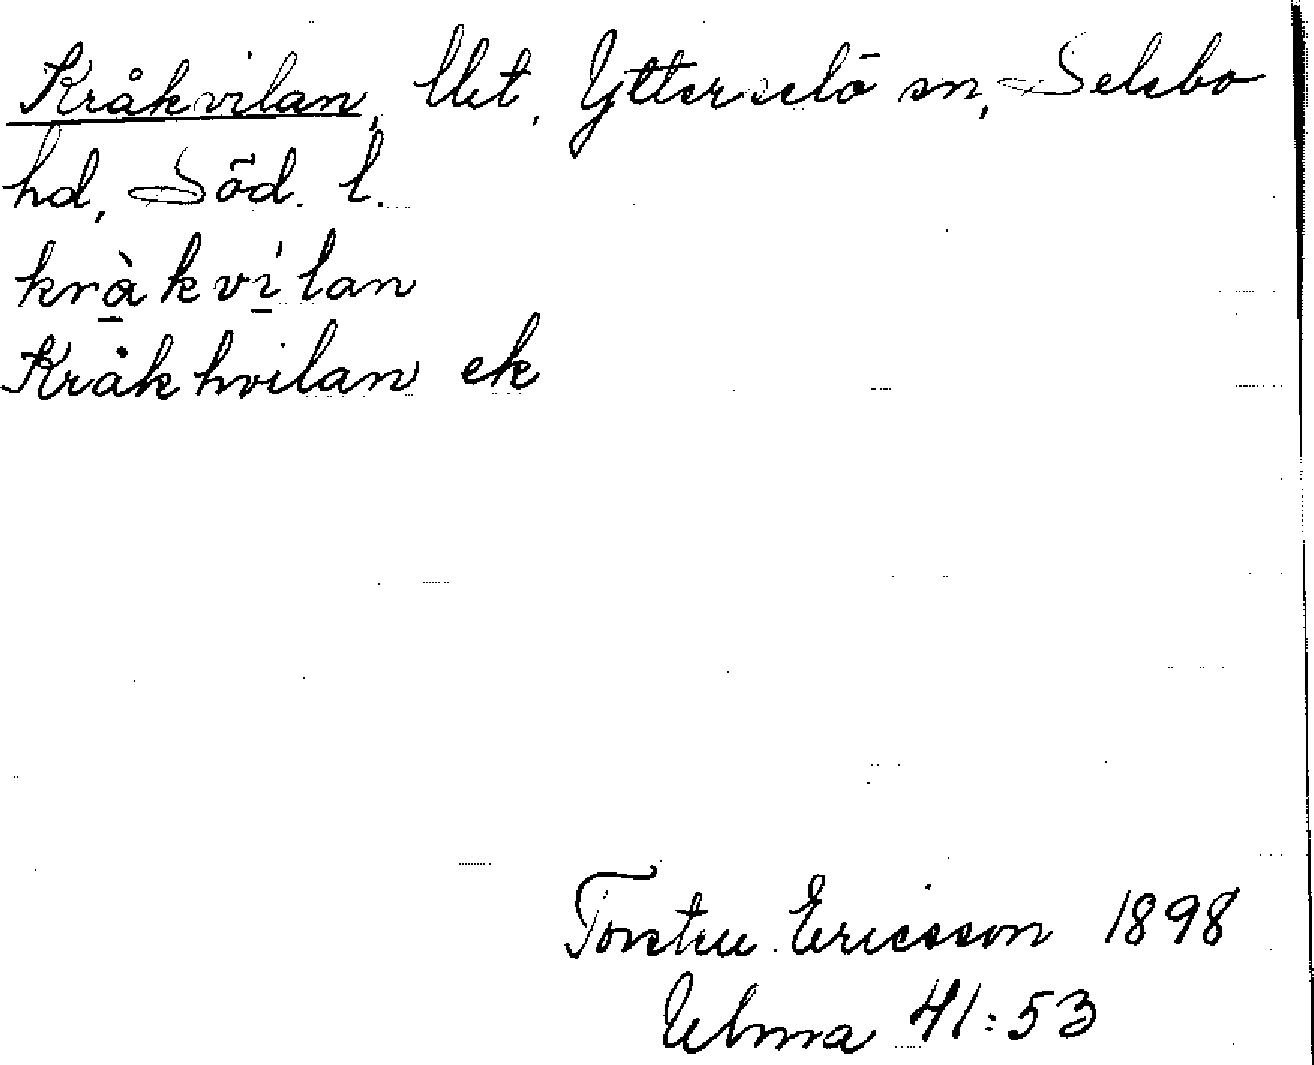 Kråkvilan, lht, Ytterselö sn, Selebo
hd, Söd. l.
krà̱kvi̱ ́lan
Kråkhvilan ek
Torsten Ericsson 1898
Ulma 41:53